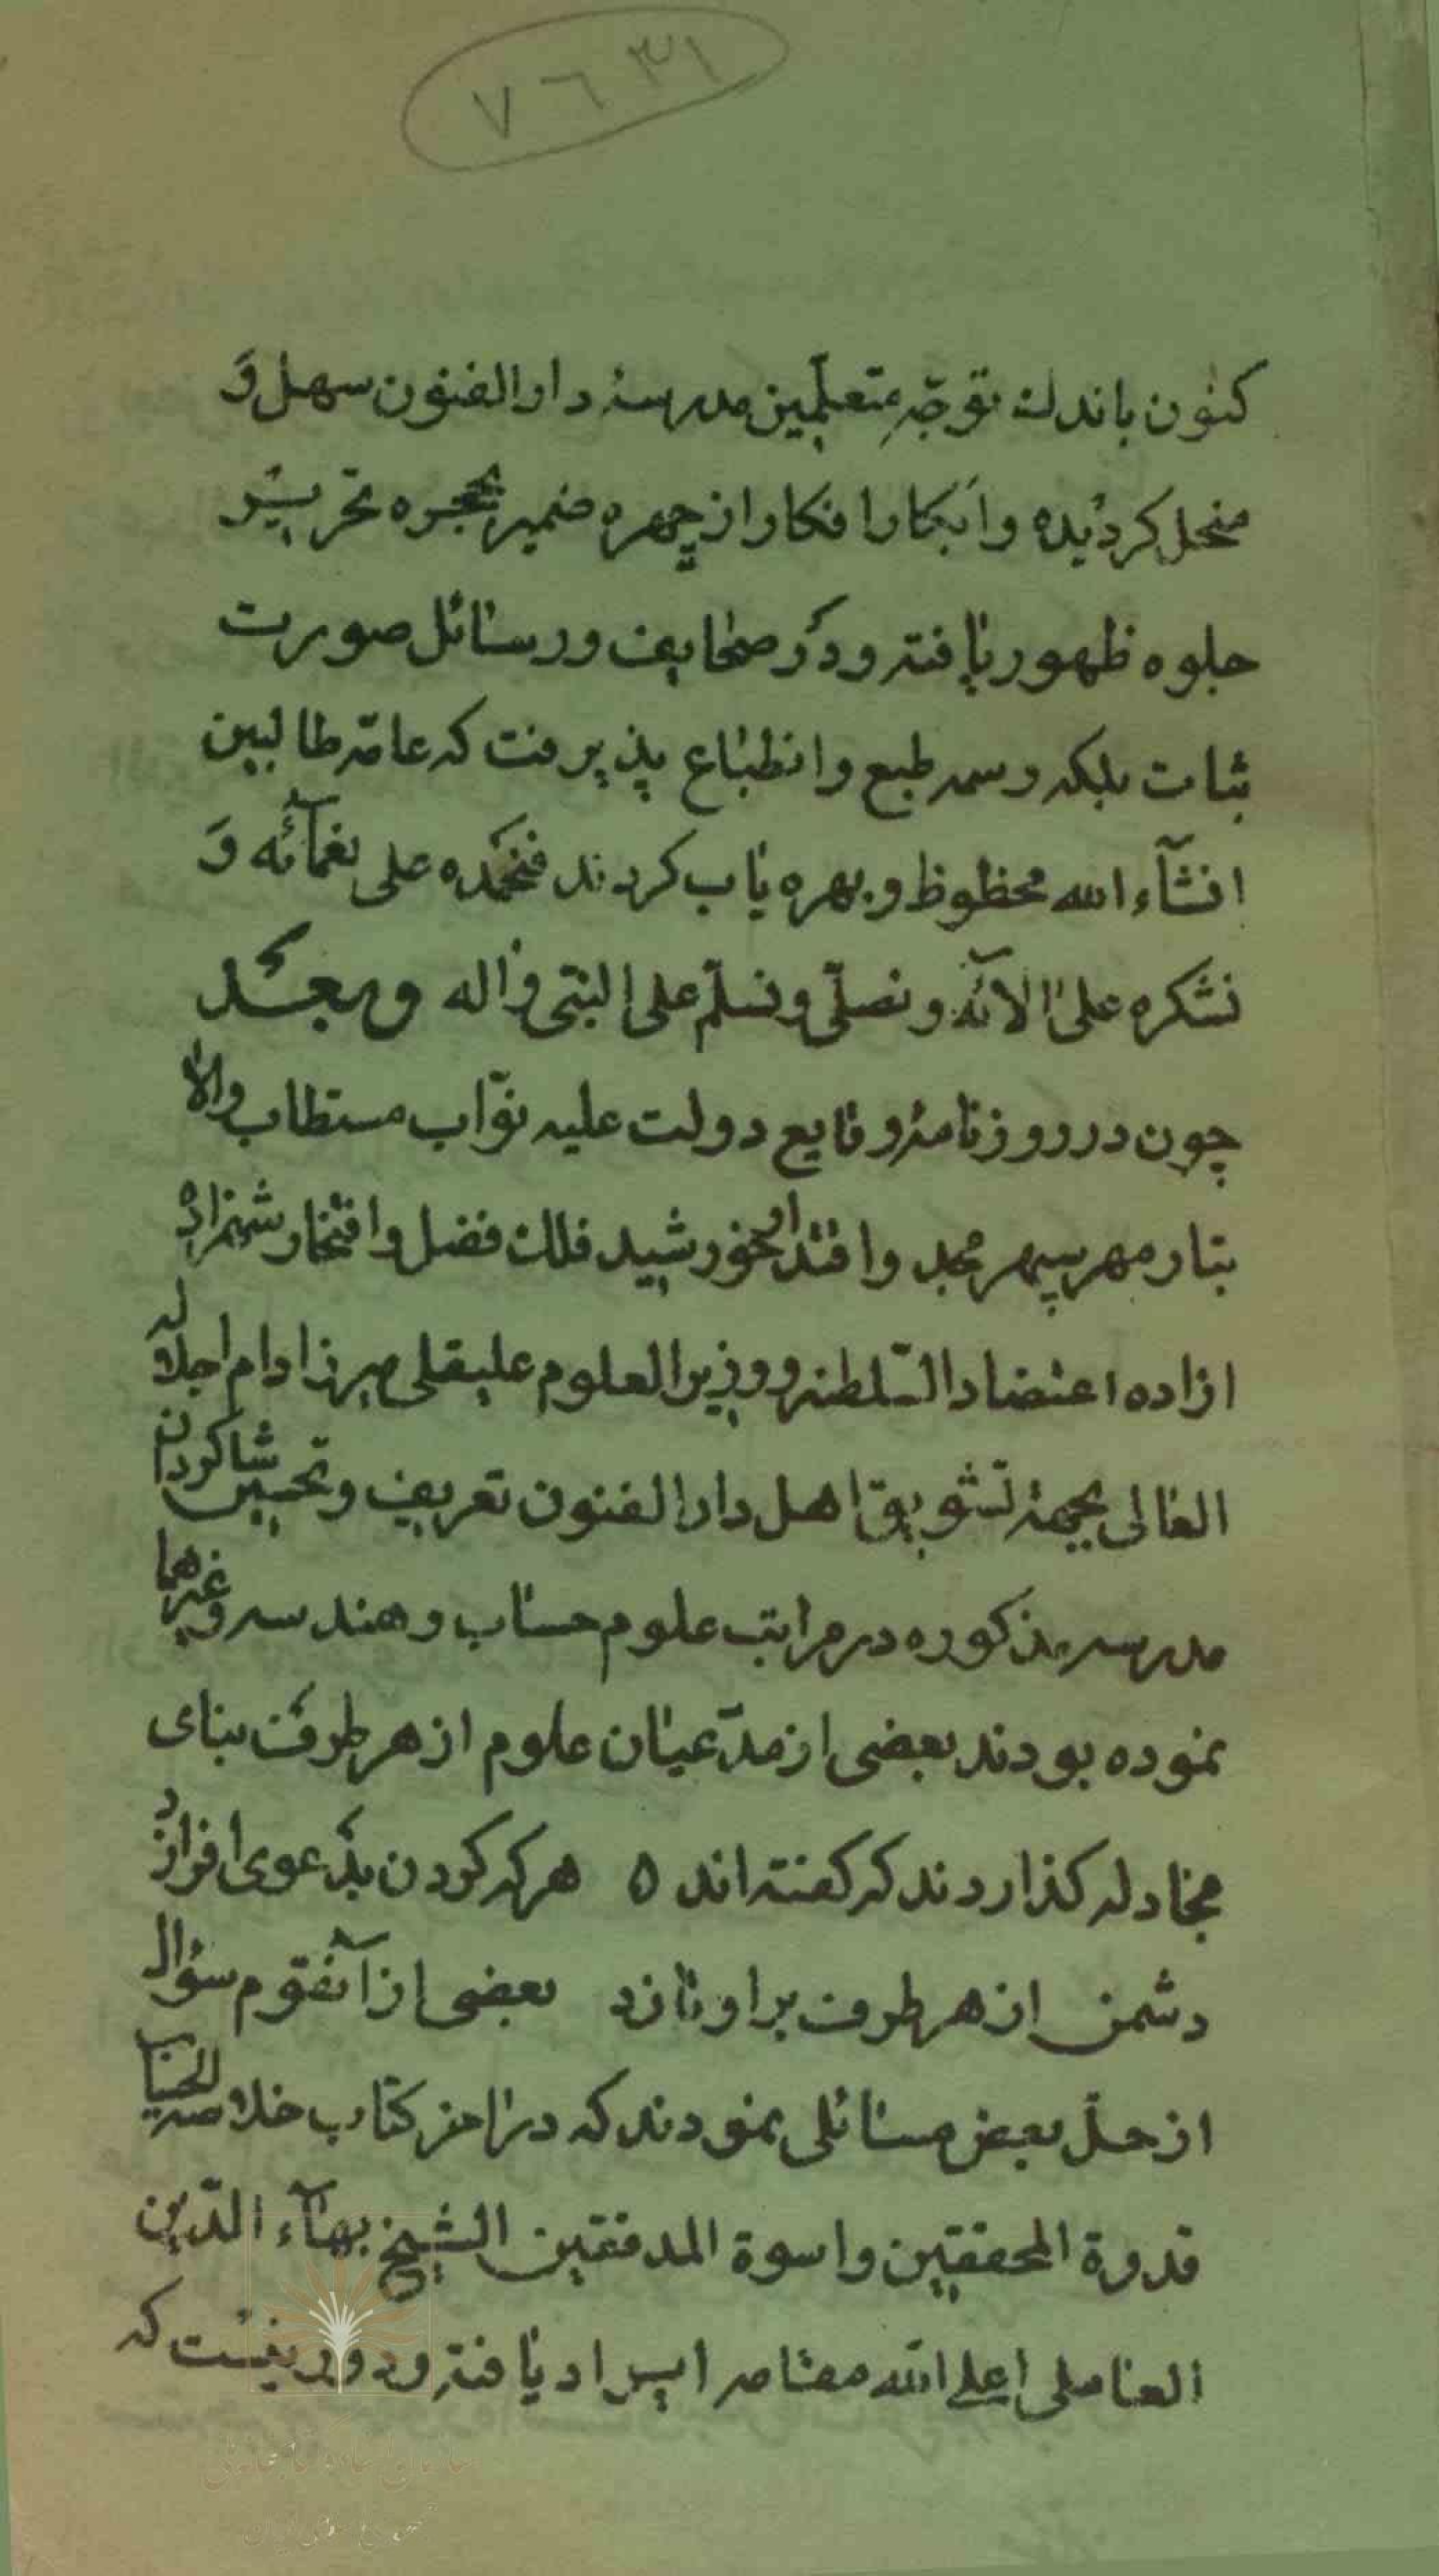 ۷۶۳۱
کنون باندک توجّهِ متعلّمین مدرسهٔ دارالفنون سهل وَ
منحل کردیده و ابکار افکار از چهره ضمیر بحجره تحریر
جلوه ظهور یافته و در صحایف و رسائل صورت
ثبات بلکه رسم طبع و انطباع پذیرفت که عامّه طالبین
انشآء الله محظوظ و بهره یاب کردند فنحمَده علی نعمآئه وَ
نشکره علی الآئه و نصلّی و نسلّم علی النبّی و اله وبعَد
چون در روزنامهٔ وقایع دولت علیه نوّاب مستطاب والا
تبار مهر سپهر مجد و اقتدار خورشید فلک فضل و افتخار شهزاده
ازاده اعتضاد السّلطنه و وزیر العلوم علیقلی میرزا دام اجلاله
العالی بجهة تشویق اهل دارالفنون تعریف و تحسین شاکردان
مدرسه مذکوره در مراتب علوم حساب و هندسه و غیرهما
نموده بودند بعضی از مدّعیان علوم از هر طرف بنای
مجادله کذاردند که کفته اند ه هر که کردن بدَعوی افرازد
دشمن از هر طرف بر او تازد بعضی از آنقوم سؤال
از حلّ بعض مسائلی نمودند که در اخر کتاب خلاصه الحساب
قدوة المحققین و اسوة المدققین الشیخ بهآء الدّین
العاملی اعلی الله مقامه ایراد یافته و در نیست که
سازمان اسناد و کتابخانه ملی
جمهوری اسلامی ایران